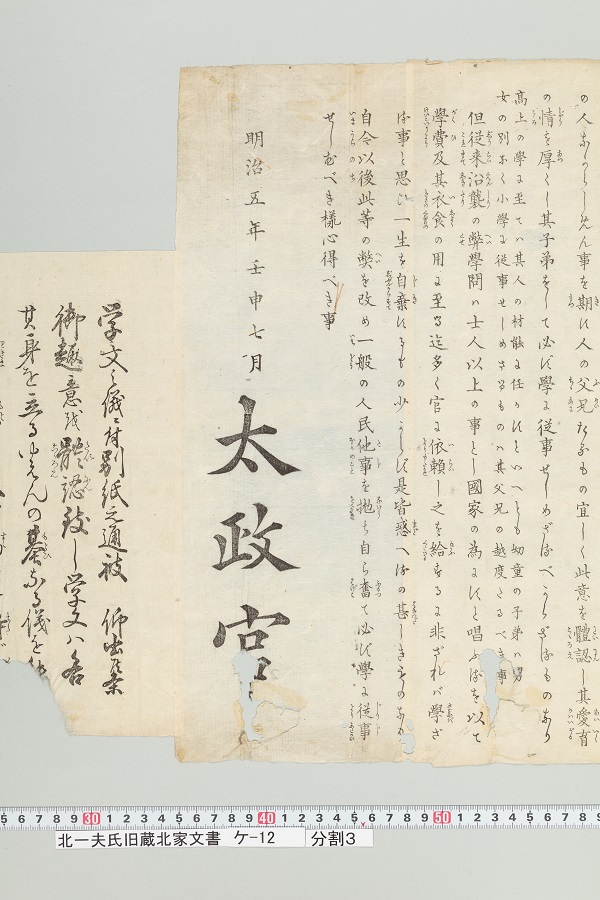 の人なからしめん事を期す人の父兄たるもの宜しく此意を體認し其愛育
の情を厚くし其子弟をして必ず學に従事せしめざるべからざるものなり
高上の學に至てハ其人の材能に任かすといへども幼童の子弟ハ男
女の別なく小學に従事せしめざるものハ其父兄の越度たるべき事
但従来沿襲の弊學問ハ士人以上の事とし國家の為にすと唱ふるを以て
學費及其衣食の用に至る迄多く官に依頼し之を給するに非ざれバ學ざ
る事と思ひ一生を自棄するもの少からず是皆惑へるの甚しきものなり
自今以後此等の弊を改め一般の人民他事を抛ち自ら奮て必ず學に従事
せしむべき様心得べき事
明治五年壬申七月
太政官
学文之儀ニ付別紙之通被 仰出候条
御趣意 體認致し学文ハ各
其身を立るゆゑんの基なる儀を
北一夫氏旧蔵北家文書 ケ-12 分割3